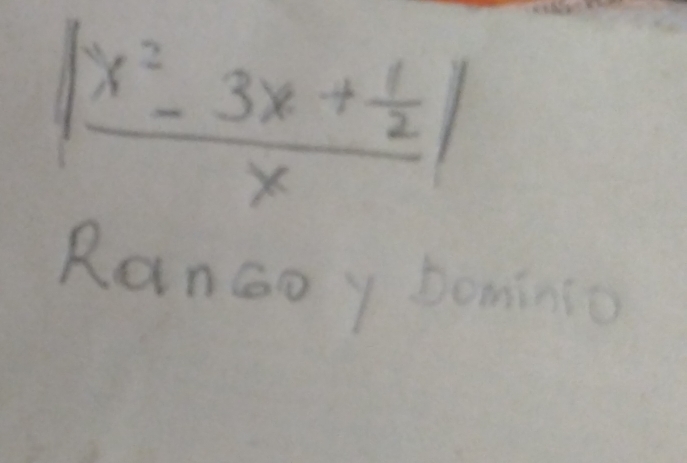 |x² - 3x + 1/2|
x
Rango y Dominio